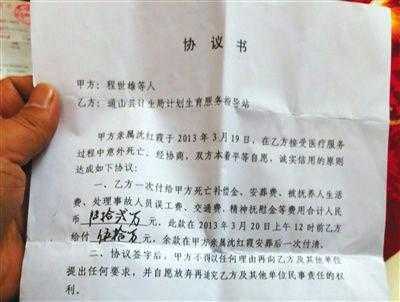 协议书
甲方：程世雄等人
乙方：通山县计生局计划生育服务指导站
甲方亲属沈红霞于 2013 年 3 月 19 日，在乙方接受医疗服务
过程中意外死亡、经协商，双方本着平等自愿，诚实信用的原则
达成如下协议：
一、乙方一次付给甲方死亡补偿金、安葬费、被抚养人生活
费、处理事故人员误工费、交通费、精神抚慰金等费用合计人民
币 万元，此款在 2013 年 3 月 20 日上午 12 时前乙方
给付伍拾万元，余款在甲方亲属沈红霞安葬后一次付清。
二、协议签字后，甲方不得以任何理由再向乙方及其他单位
提出任何要求，并自愿放弃再追究乙方及其他单位民事责任的权
利。